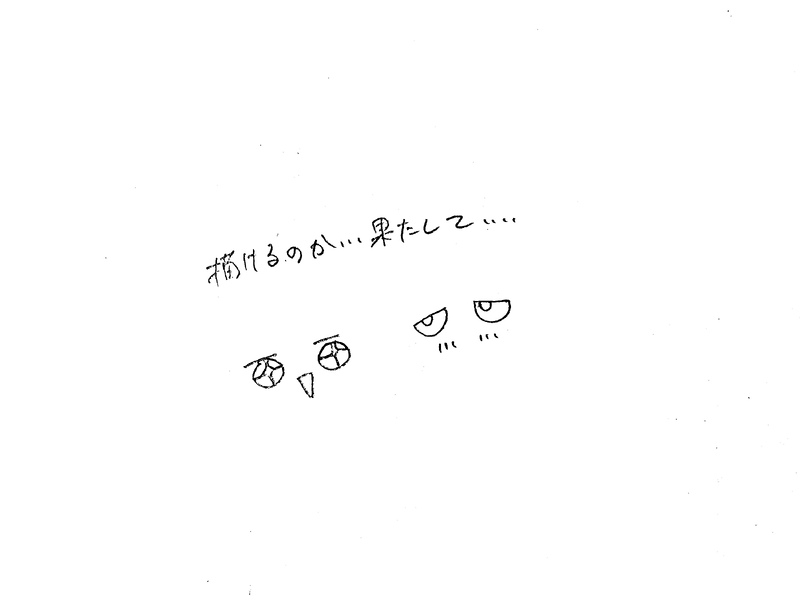 描けるのか…果たして‥‥